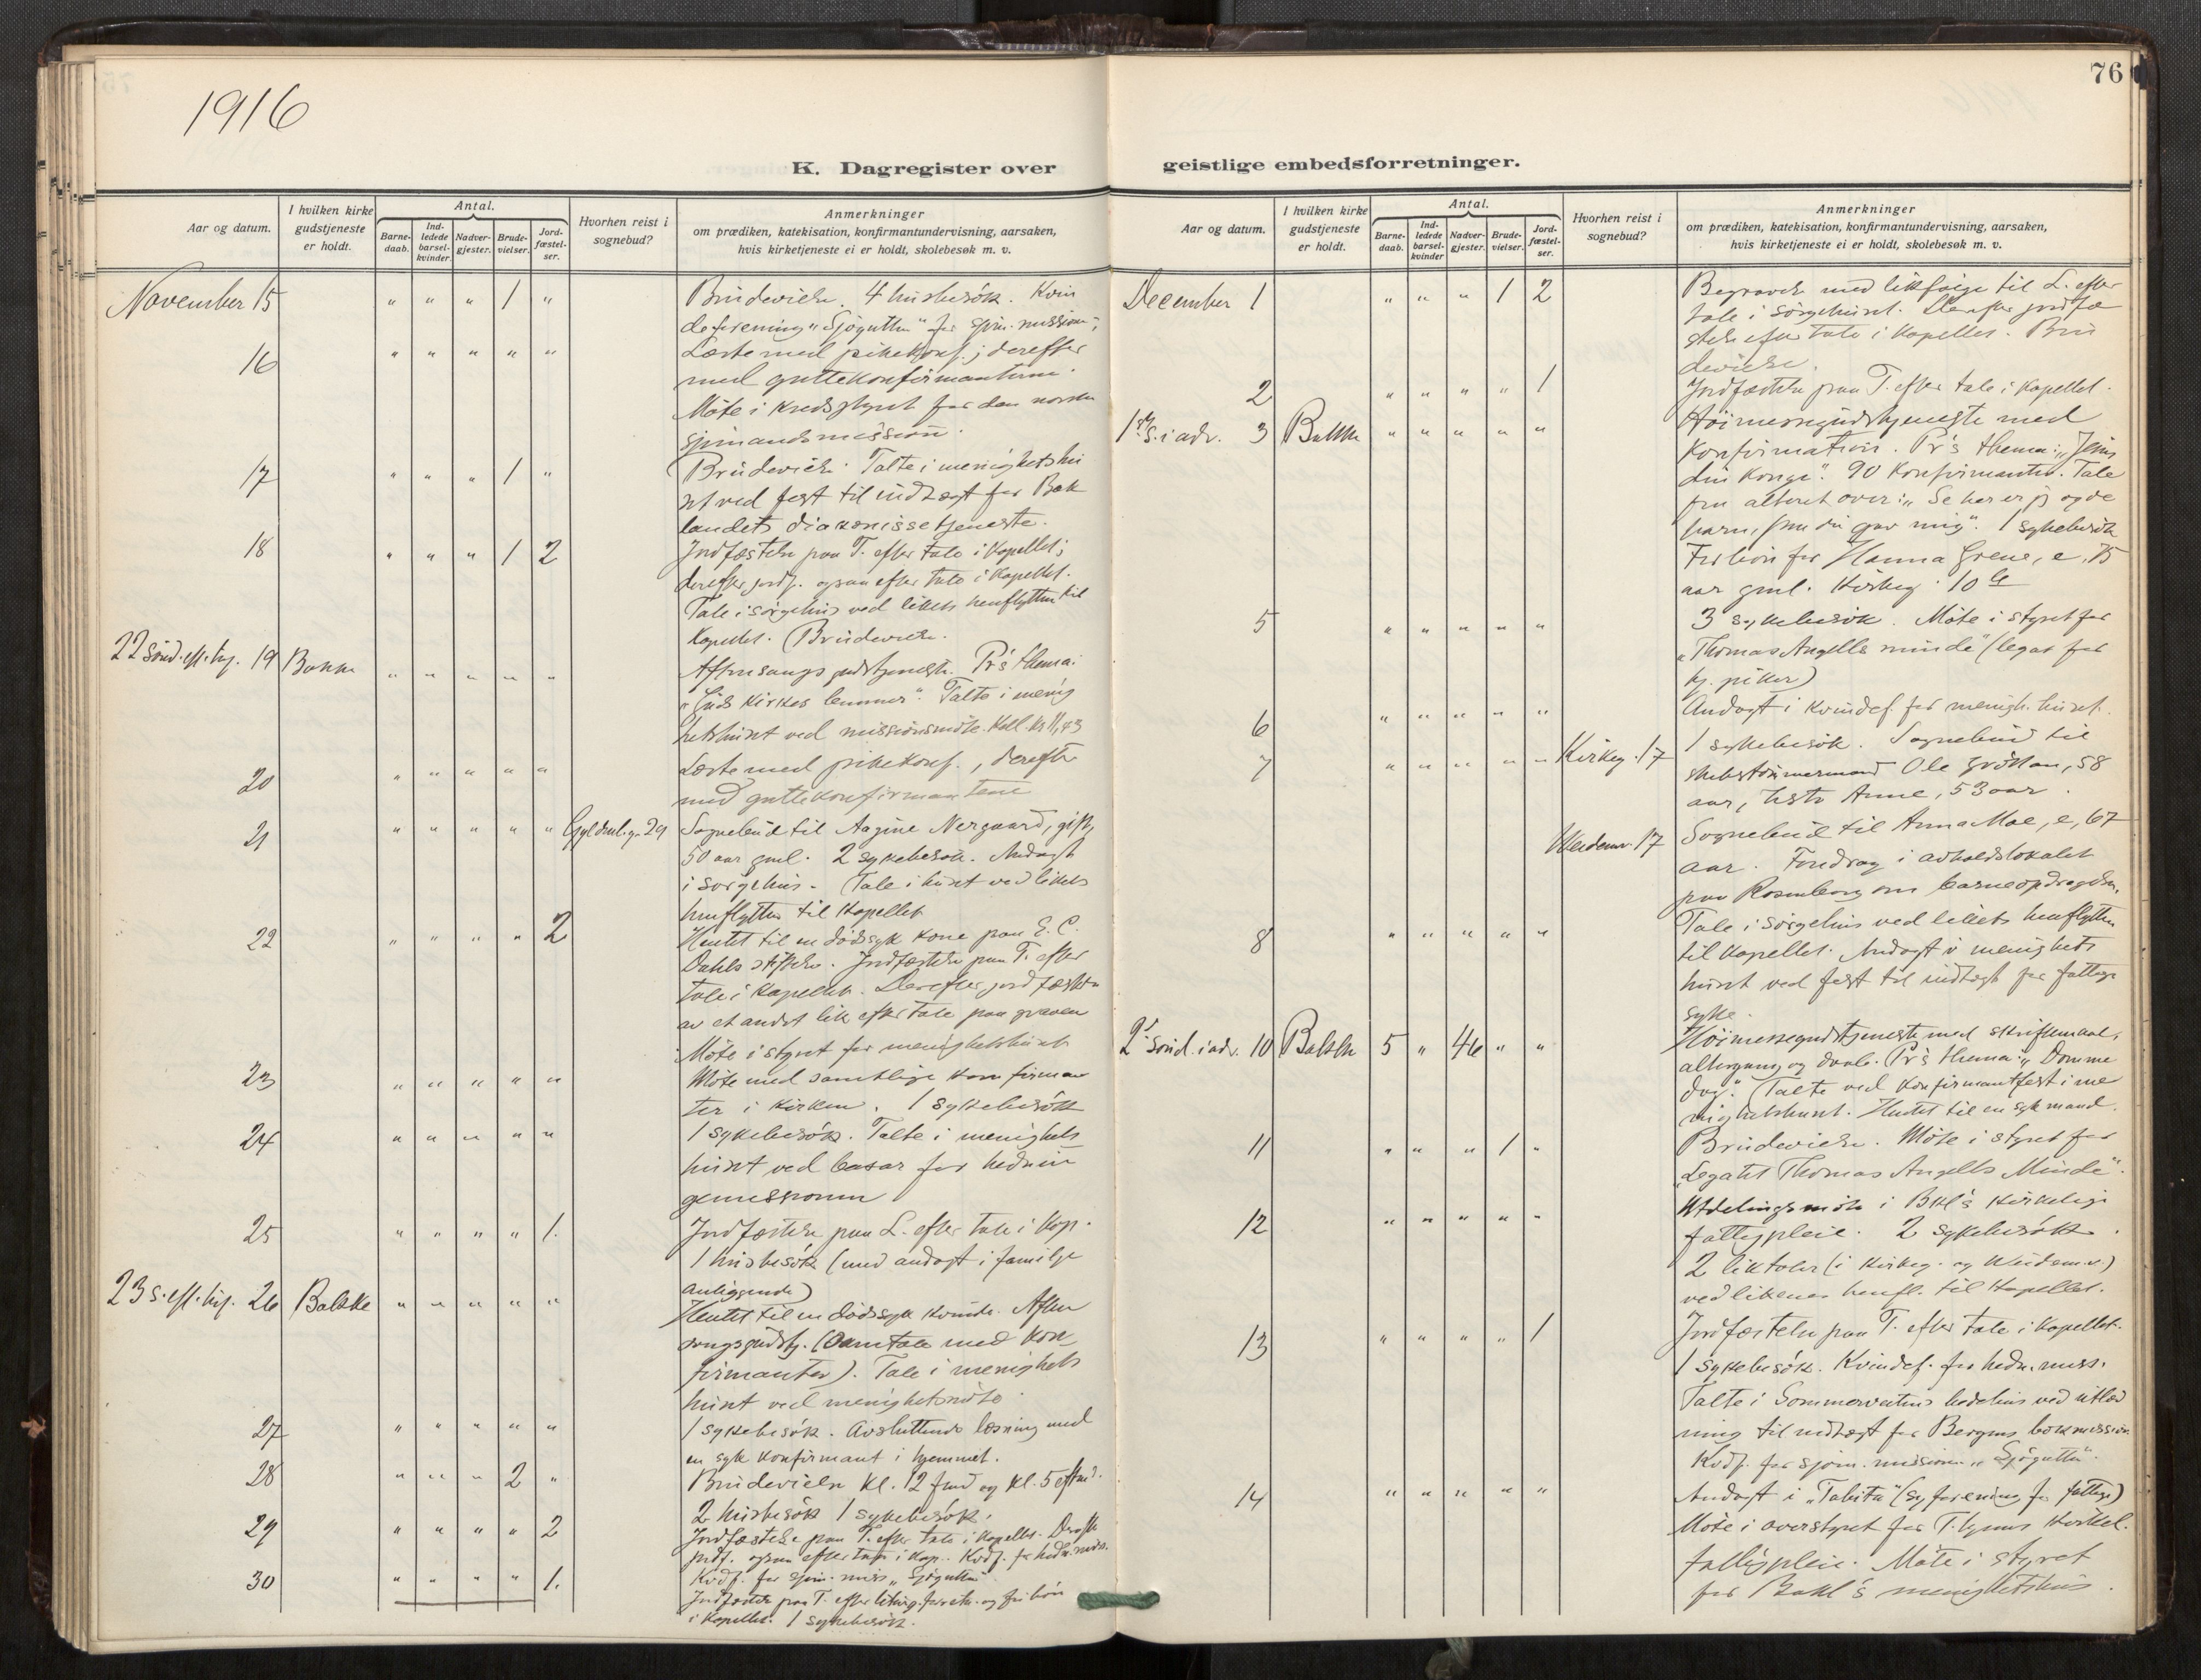 1916
76
K. Dagregister over
geistlige embedsforretninger.
Aar og datum.
I hvilken kirke gudstjeneste er holdt.
Antal.
Barne-daab.
Ind-ledede barsel-kvinder.
Nadver-gjester.
Brude-vielser.
Jord-fæstel-ser.
Hvorhen reist i sognebud?
Anmerkninger
om prædiken, katekisation, konfirmantundervisning, aarsaken,
hvis kirketjeneste ei er holdt, skolebesøk m. v.
November 15 " " " 1 " Brudevielse. 4 husbesök. Kvin
deforening "Sjögutten" for sjöm. mission;
16 " " " " " Læste med pikekonf.; derefter
med guttekonfirmanterne.
Möte i kredsstyret for den norske
sjömandsmission.
17 " " " 1 " Brudevielse. Talte i menighetshu
set ved fest til indtægt for Bak
landets diakonissetjeneste.
18 " " " 1 2 Jordfæstelse paa T. efter tale i kapellet;
derefter jordf. ogsaa efter tale i kapellet.
Tale i sörgehus ved likets henflytten til
kapellet. Brudevielse.
22 sönd. eft. trf. 19 Bakke " " " " " Aftensangsgudstjeneste. Pr's thema:
"Guds kirkes lemmer". Talte i menig
hetshuset ved missionsmöte. Koll. kr 11,43
20 " " " " " Læste med pikekonf., derefter
med guttekonfirmantene
21 " " " " " Gyldenl.g. 29 Sognebud til Aagine Nergaard, gift,
50 aar gml. 2 sykebesök. Andagt
i sörgehus. Tale i huset ved likets
henflytten til kapellet
22 " " " " 2 Hentet til en dödssyk kone paa E. C.
Dahls stiftelse. Jordfæstelse paa T. efter
tale i kapellet. Derefter jordfæstelse
av et andet lik efter tale paa graven
Möte i styret for menighetshuset
23 " " " " " Möte med samtlige konfirman
ter i kirken. 1 sykebesök
24 " " " " " 1 sykebesök. Talte i menighets
huset ved basar for hednin
gemissionen
25 " " " " 1. Jordfæstelse paa L. efter tale i kap.
1 husbesök (med andagt i familje
anliggende)
23 s. eft. trf. 26 Bakke " " " " " Hentet til en dödssyk kvinde. Aften
sangsgudstj. (Samtale med kon
firmanter). Tale i menighets
huset ved menighetsmöte.
27 " " " " " 1 sykebesök. Avsluttende læsning med
en syk konfirmant i hjemmet.
28 " " " 2 " Brudevielse kl. 12 fmd og kl. 5 eftmd.
2 husbesök 1 sykebesök.
29 " " " " 2 Jordfæstelse paa T. efter tale i kapellet. Dereft
jordf. ogsaa efter tale i kap. Kvdf. for hedn. miss.
Kvdf. for sjöm. miss "Sjögutten"
30 " " " " 1. Jordfæstelse paa T. efter liturg. forretn. og fri bön
i kapellet. 1 sykebesök.
Aar og datum.
I hvilken kirke gudstjeneste er holdt.
Antal.
Barne-daab.
Ind-ledede barsel-kvinder
Nadver-gjester.
Brude-vielser.
Jord-fæstel-ser.
Hvorhen reist i sognebud?
Anmerkninger
om prædiken, katekisation, konfirmantundervisning, aarsaken,
hvis kirketjeneste ei er holdt, skolebesøk m. v.
December 1 " " " 1 2 Begravelse med likfølge til L. efter
tale i sörgehuset. Derefter jordfæ
stelse efter tale i kapellet. Bru
devielse.
2 " " " " 1 Jordfæstelse paa T. efter tale i kapellet.
1ste S. i adv. 3 Bakke " " " " " Höimessegudstjeneste med
konfirmation. Pr's thema: "Jesus
din konge". 90 konfirmanter. Tale
fra alteret over: "Se her er jeg og de
barn, som du gav mig". 1 sykebesök
Forbön for Hanna Grene, e, 75
aar gml. Kirkeg. 10
5 " " " " " 3 sykebesök. Möte i styret for
"Thomas Angells minde" (legat for
kj. piker)
6 " " " " " Andagt i kvindef. for menigh. huset.
7 " " " " " Kirkeg. 17 1 sykebesök. Sognebud til
skibstömmermand Ole Gröttan, 58
aar, hstr Anne, 53 aar.
Weidemv. 17 Sognebud til Anna Moe, e, 67
aar. Foredrag i avholdslokalet
paa Rosenborg om barneopdragelse.
8 " " " " " Tale i sörgehus ved likets henflytten
til kapellet. Andagt i menighets
huset ved fest til indtægt for fattige
syke.
2d sönd. i adv. 10 Bakke 5 " 46 " " Höimessegudstjeneste med skriftemaal,
altergang og daab. Pr's thema: "Domme
dag". Talte ved konfirmantfest i me
nighetshuset. Hentet til en syk mand.
11 " " " 1 " Brudevielse. Möte i styret for
"Legatet Thomas Angells Minde".
12 " " " " " Utdelingsmöte i Bkl's kirkelige
fattigpleie. 2 sykebesök.
2 liktaler (i Kirkeg. og Weidem.v.)
ved likenes henfl. til kapellet.
13 " " " " 1 Jordfæstelse paa T. efter tale i kapellet.
1 sykebesök. Kvindef. for hedn. miss.
Talte i Sommerveitens bedehus ved utlod
ning til indtægt for Bergens bokmission
Kvdf. for sjöm. mission "Sjögutten".
14 " " " " " Andagt i "Tabita" (syforening for fattige)
Möte i overstyret for T.hjems kirkel.
fattigpleie. Möte i styret
for Bakl's menighetshus.